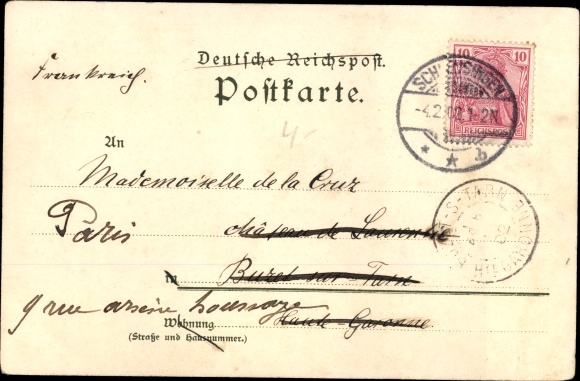 Deutsche Reichspost.
Postkarte.
Frankreich.
10 10
REICHSPOST
SCHLEUSINGEN
-4.2.00.1-2N.
* * b
4-
An
Mademoiselle de la Cruz
Paris
château de
in Buzet sur Tarn
9 rue arsène houssaye
Wohnung Haute-Garonne
(Straße und Hausnummer.)
S-TARN